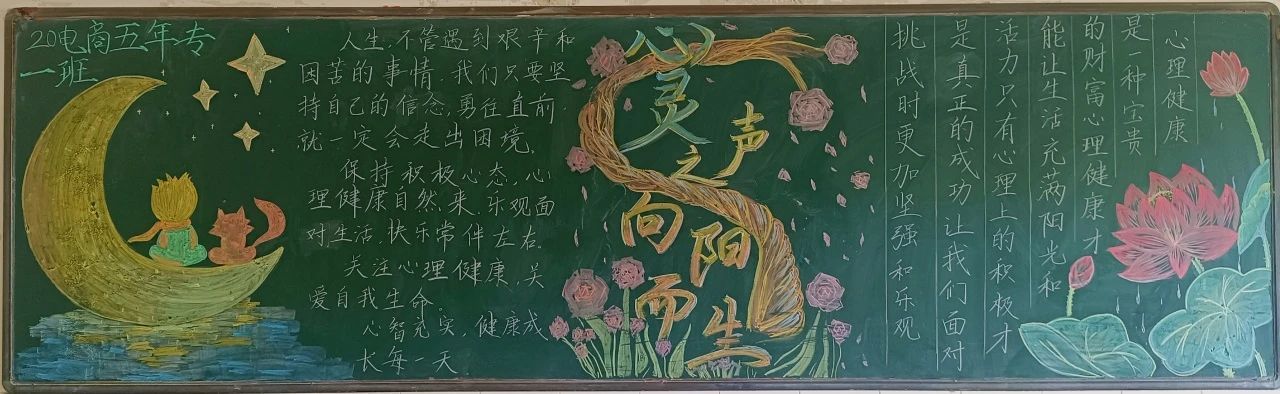 20电商五年专
一班
人生,不管遇到艰辛和
困苦的事情,我们只要坚
持自己的信念,勇往直前,
就一定会走出困境,
保持积极心态,心
理健康自然来,乐观面
对生活,快乐常伴左右。
关注心理健康,关
爱自我生命。
心智充实,健康成
长每一天
心灵之声
向阳而生
心理健康
是一种宝贵
的财富心理健康才
能让生活充满阳光和
活力只有心理上的积极才
是真正的成功让我们面对
挑战时更加坚强和乐观